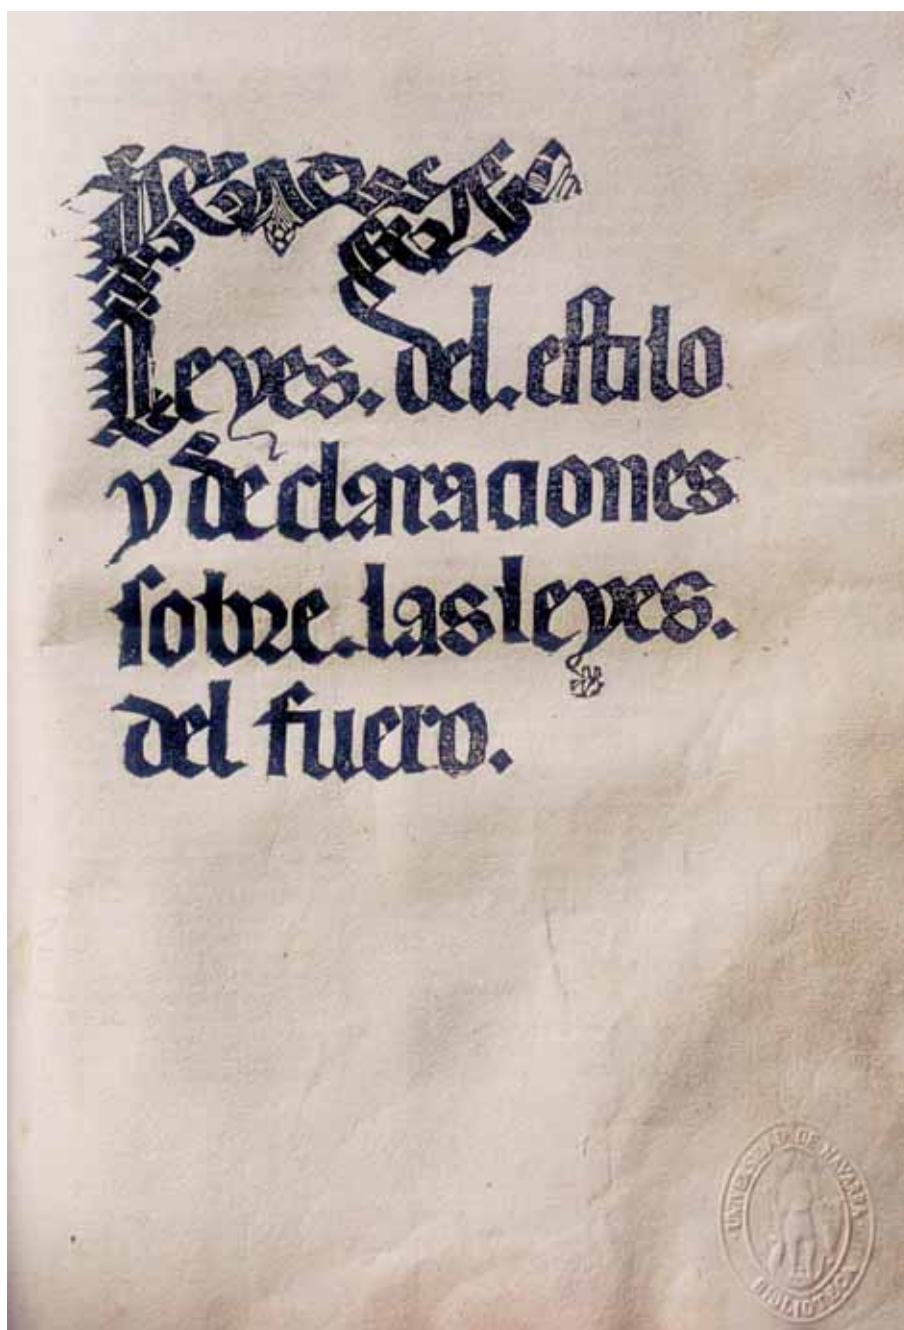 Leyes. del. estilo
y declaraciones
sobre. las leyes.
del fuero.
UNIVERSIDAD DE NAVARRA
BIBLIOTECA